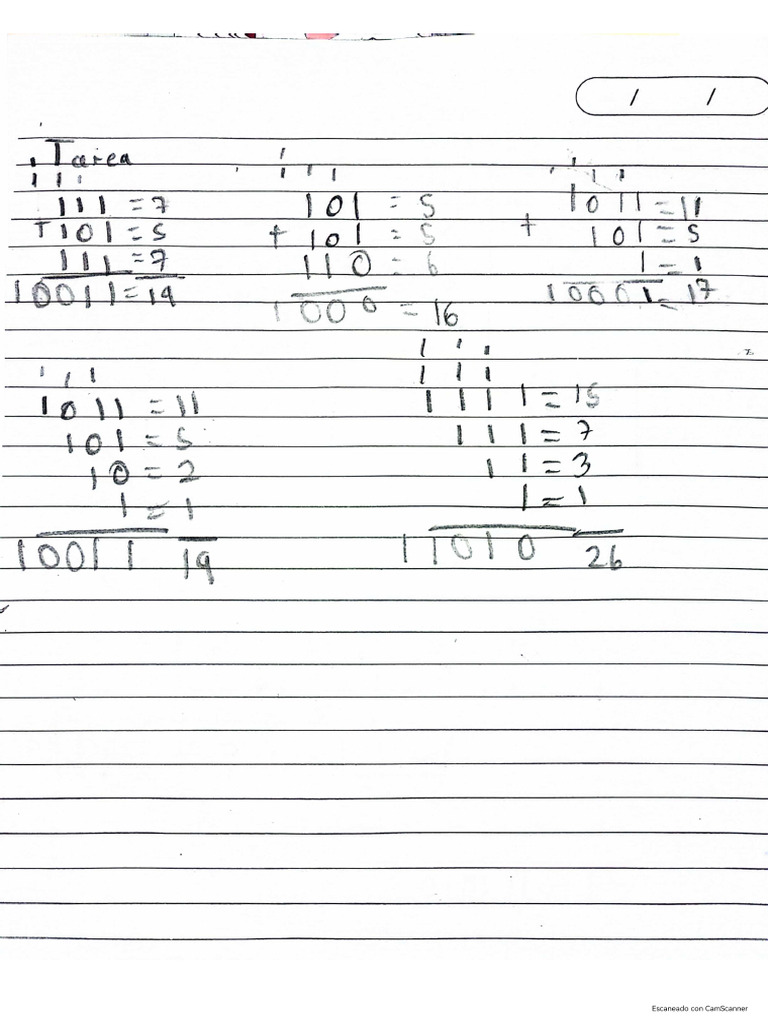 / /
Tarea
1
1 1 1
111 = 7
+ 101 = 5
111 = 7
10011 = 19
1
1 1 1
101 = 5
+ 101 = 5
110 = 6
1000 0 = 16
1
1 1
1011 = 11
+ 101 = 5
1 = 1
10001 = 17
1 1 1
1011 = 11
101 = 5
10 = 2
1 = 1
10011 19
1 1 1
1 1 1
1111 = 15
111 = 7
11 = 3
1 = 1
11010 26
Escaneado con CamScanner